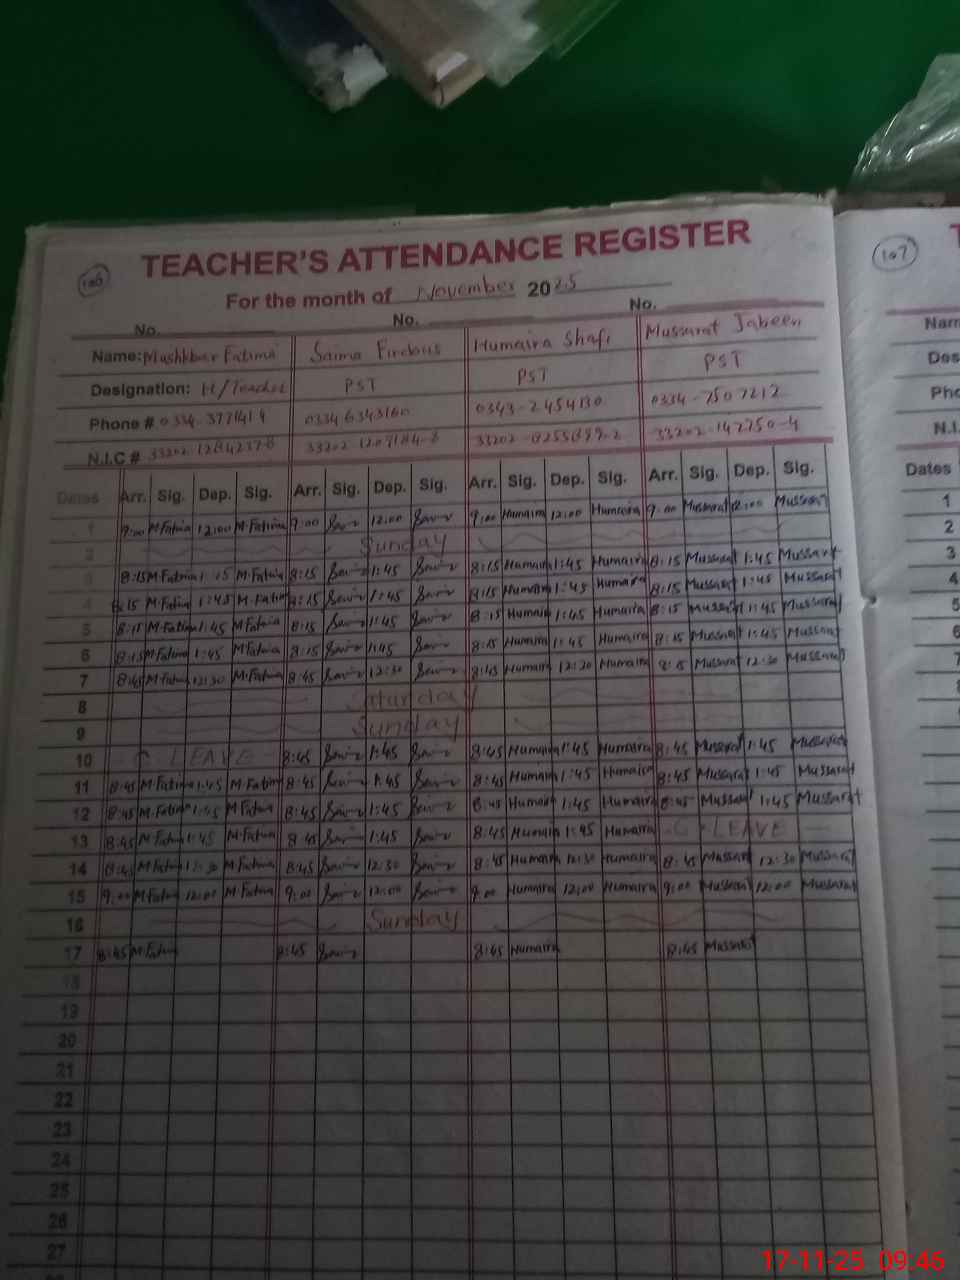 106
TEACHER'S ATTENDANCE REGISTER
For the month of November 2025
No. No. No.
Name: Mushkbar Fatima Saima Firdous Humaira Shafi Mussarat Jabeen
Designation: H/Teacher PST PST PST
Phone # 0334-3771414 03346343160 0343-2454130 0334-7507212
N.I.C # 33202 33202 33202 33202-147750-4
Dates Arr. Sig. Dep. Sig. Arr. Sig. Dep. Sig. Arr. Sig. Dep. Sig. Arr. Sig. Dep. Sig.
1 9:00 M.Fatima 12:00 M.Fatima 9:00 12:00 9:00 Humaira 12:00 Humaira 9:00 Mussarat 12:00 Mussarat
2 Sunday
3 8:15 M.Fatima 1:45 M.Fatima 8:15 1:45 8:15 Humaira 1:45 Humaira 8:15 Mussarat 1:45 Mussarat
4 8:15 M.Fatima 1:45 M.Fatima 8:15 1:45 8:15 Humaira 1:45 Humaira 8:15 Mussarat 1:45 Mussarat
5 8:15 M.Fatima 1:45 M.Fatima 8:15 1:45 8:15 Humaira 1:45 Humaira 8:15 Mussarat 1:45 Mussarat
6 8:15 M.Fatima 1:45 M.Fatima 8:15 1:45 8:15 Humaira 1:45 Humaira 8:15 Mussarat 1:45 Mussarat
7 8:45 M.Fatima 12:30 M.Fatima 8:45 12:30 8:45 Humaira 12:30 Humaira 8:15 Mussarat 12:30 Mussarat
8 Saturday
9 Sunday
10 LEAVE 8:45 1:45 8:45 Humaira 1:45 Humaira 8:45 Mussarat 1:45 Mussarat
11 8:45 M.Fatima 1:45 M.Fatima 8:45 1:45 8:45 Humaira 1:45 Humaira 8:45 Mussarat 1:45 Mussarat
12 8:45 M.Fatima 1:45 M.Fatima 8:45 1:45 8:45 Humaira 1:45 Humaira 8:45 Mussarat 1:45 Mussarat
13 8:45 M.Fatima 1:45 M.Fatima 8:45 1:45 8:45 Humaira 1:45 Humaira C-LEAVE
14 8:45 M.Fatima 12:30 M.Fatima 8:45 12:30 8:45 Humaira 12:30 Humaira 8:45 Mussarat 12:30 Mussarat
15 9:00 M.Fatima 12:00 M.Fatima 9:00 12:00 9:00 Humaira 12:00 Humaira 9:00 Mussarat 12:00 Mussarat
16 Sunday
17 8:45 M.Fatima 8:45 8:45 Humaira 8:45 Mussarat
18
19
20
21
22
23
24
25
26
27
107
T
Nam
Des
Pho
N.I.
Dates
1
2
3
4
5
6
7
17-11-25 09:46